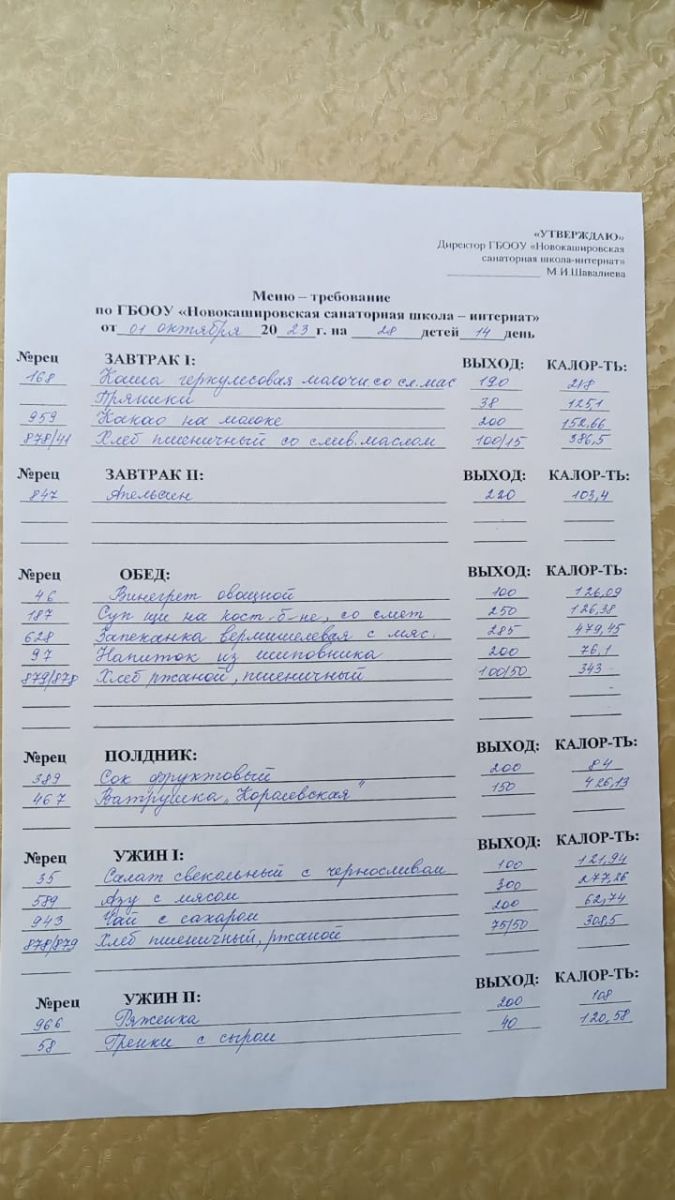 «УТВЕРЖДАЮ»
Директор ГБООУ «Новокашировская
санаторная школа-интернат»
М.И.Шавалиева
Меню – требование
по ГБООУ «Новокашировская санаторная школа – интернат»
от 01 октября 2023 г. на 28 детей 14 день
№рец ЗАВТРАК I: ВЫХОД: КАЛОР-ТЬ:
168 Каша геркулесовая молочн. со сл. мас 190 218
Пряники 38 125,1
959 Какао на молоке 200 152,66
878/41 Хлеб пшеничный со слив. маслом 100/15 386,5
№рец ЗАВТРАК II: ВЫХОД: КАЛОР-ТЬ:
847 Апельсин 220 103,4
№рец ОБЕД: ВЫХОД: КАЛОР-ТЬ:
46 Винегрет овощной 100 126,09
187 Суп щи на кост. б-не, со смет 250 126,38
628 Запеканка вермишелевая с мяс. 285 479,45
97 Напиток из шиповника 200 76,1
879/878 Хлеб ржаной, пшеничный 100/50 343
№рец ПОЛДНИК: ВЫХОД: КАЛОР-ТЬ:
389 Сок фруктовый 200 84
467 Ватрушка „Королевская" 150 426,13
№рец УЖИН I: ВЫХОД: КАЛОР-ТЬ:
35 Салат свекольный с черносливом 100 121,94
589 Азу с мясом 300 277,26
943 Чай с сахаром 200 62,74
878/879 Хлеб пшеничный, ржаной 75/50 308,5
№рец УЖИН II: ВЫХОД: КАЛОР-ТЬ:
966 Ряженка 200 108
58 Гренки с сыром 40 120,58